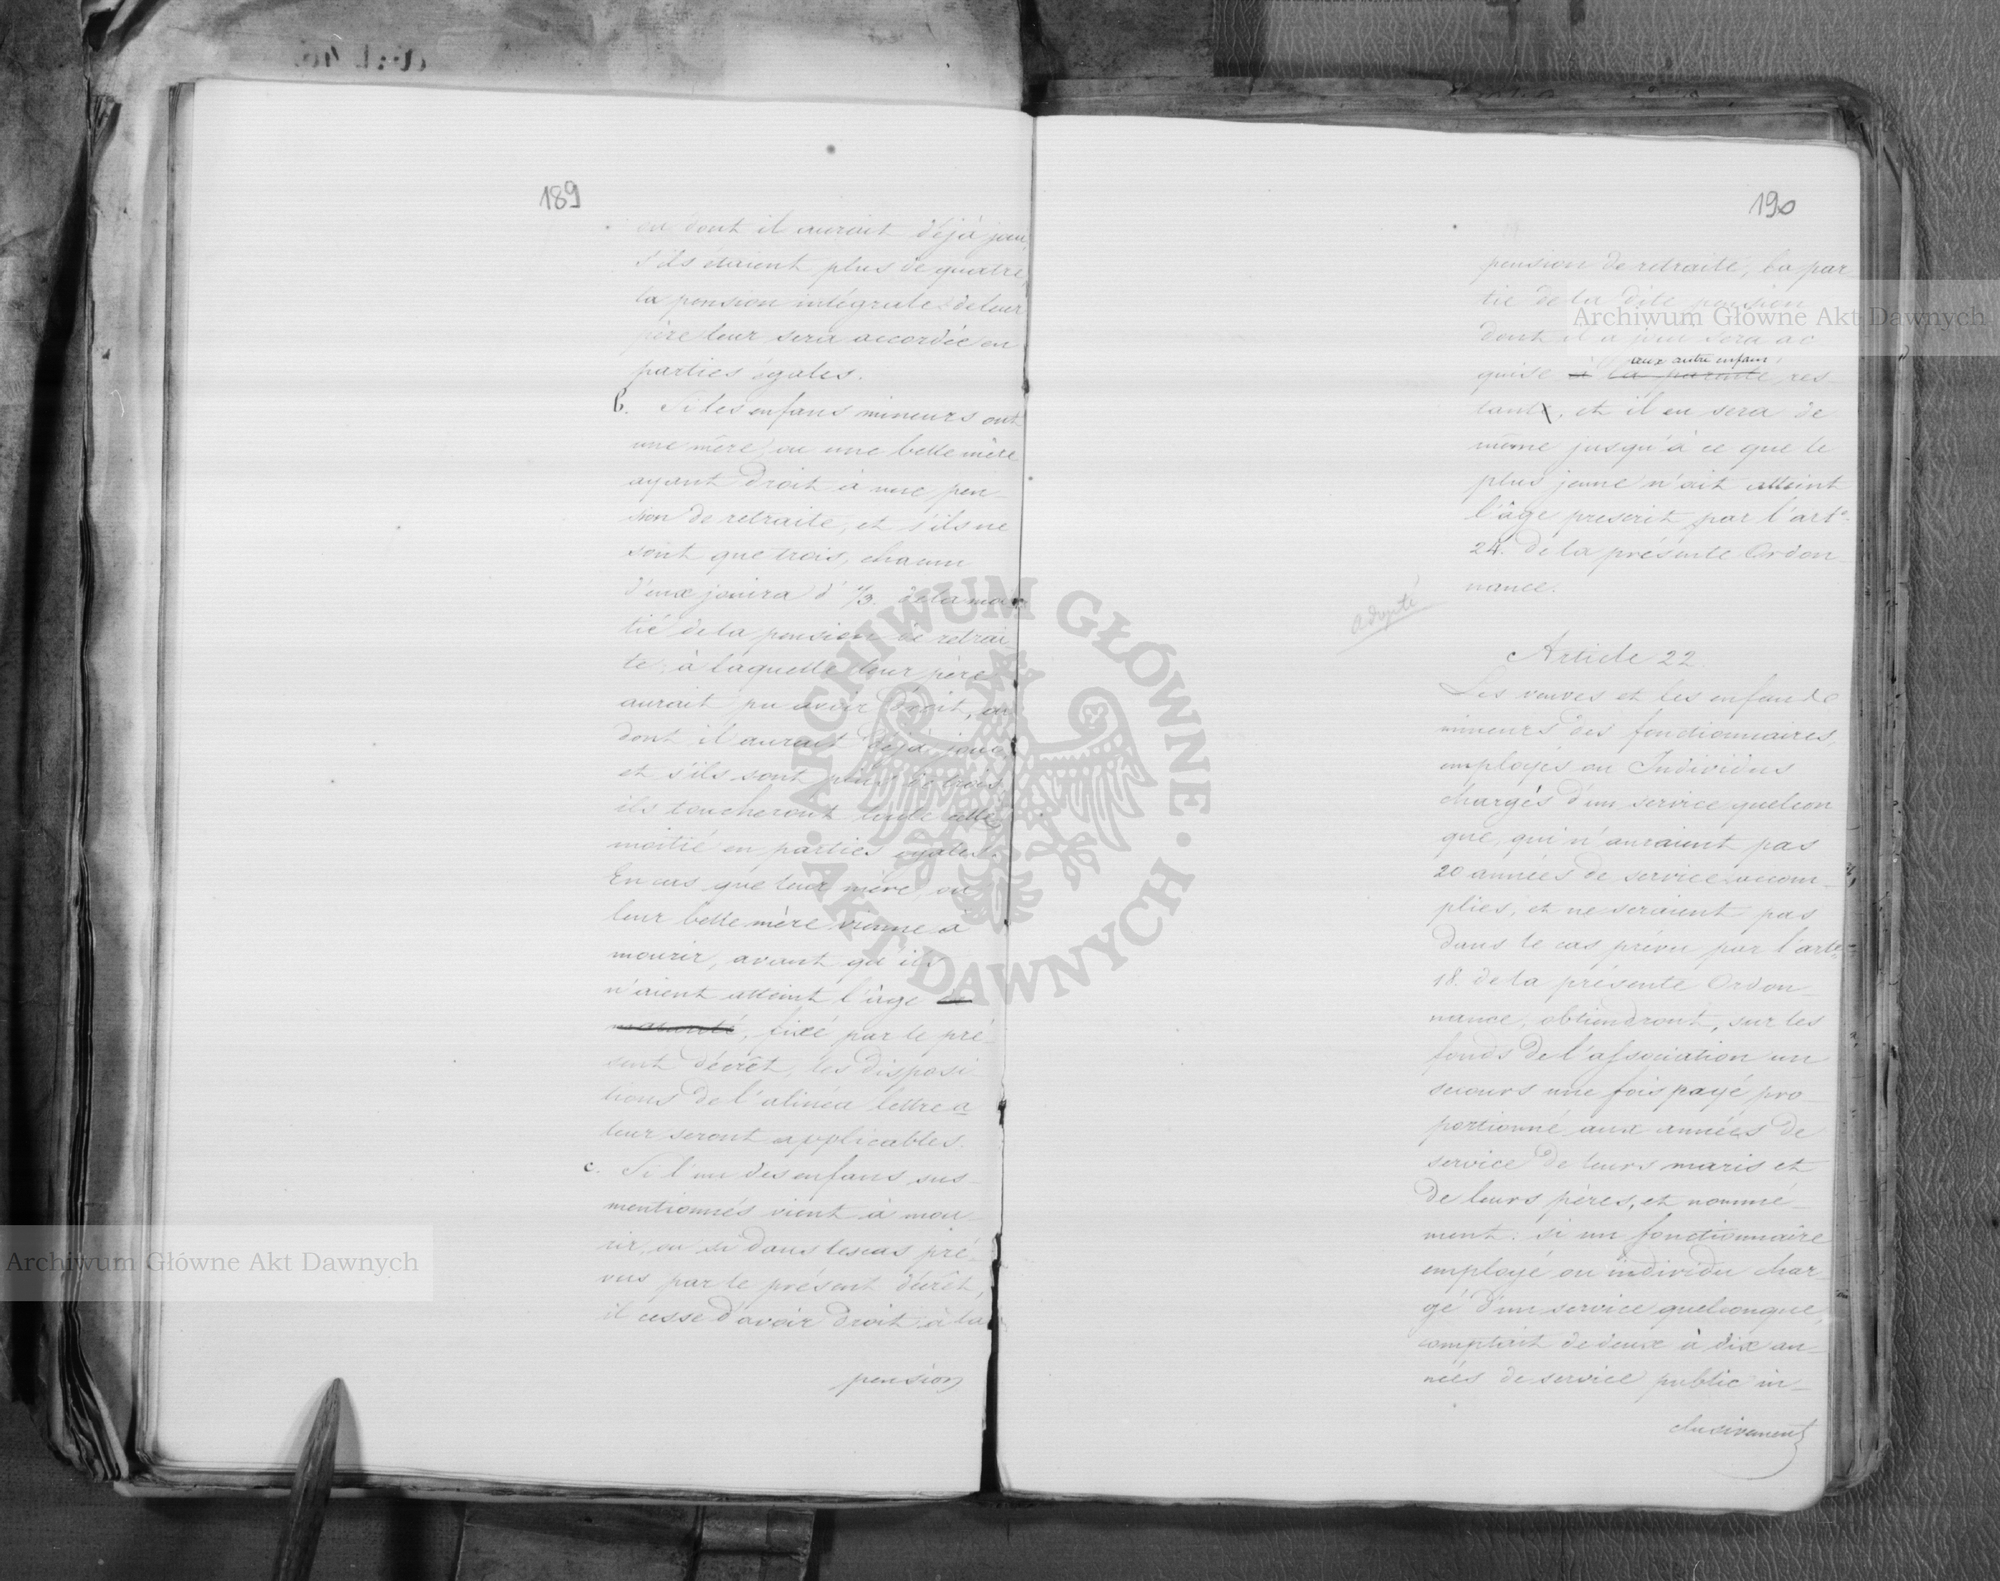 189
ou dont il auroit déjà joui,
s'ils étaient plus de quatre,
la pension intégrale de leur
père leur sera accordée en
parties égales.
b. Si les enfans mineurs ont
une mère, ou une belle mère
ayant droit à une pen-
sion de retraite, et s'ils ne
sont que trois, chacun
d'eux jouira d' 1/3. de la moi
tié de la pension de retrai
te, à laquelle leur père
aurait pu avoir droit, ou
dont il aurait déjà joui,
et s'ils sont plus de trois,
ils toucheront toute cette
moitié en parties égales.
En cas que leur mère, ou
leur belle mère vienne a
mourir, avant qu'ils
n'aient atteint l'âge de
maturité, fixé par le pré-
sent décrêt, les disposi
tions de l'alinéa lettre a
leur seront applicables.
c. Si l'un des enfans sus-
mentionnés vient à mou
rir, ou si dans les cas pré-
vus par le présent décrêt,
il cesse d'avoir droit à la
pension
190
pension de retraite, la par
tie de la dite pension
dont il a joui sera ac
aux autre enfans
quise à la parenté res-
tante, et il en sera de
même jusqu'à ce que le
plus jeune n'ait atteint
l'âge prescrit par l'art°
24. de la présente Ordon
nance.
adopté
Article 22.
Les veuves et les enfans
mineurs des fonctionnaires,
employés ou Individus
chargés d'un service quelcon
que, qui n'auraient pas
20 années de service accom-
plies, et ne seraient pas
dans le cas prévu par l'arte
18. de la présente Ordon-
nance, obtiendront, sur les
fonds de l'association un
secours une fois payé pro-
portionné aux années de
service de leurs maris et
de leurs pères, et nommé-
ment: si un fonctionnaire
employé ou individu char-
gé d'un service quelconque,
comptait de deux à dix an-
nées de service public in-
clusivement
Archiwum Główne Akt Dawnych
Archiwum Główne Akt Dawnych
ARCHIWUM GŁÓWNE · AKT DAWNYCH ·